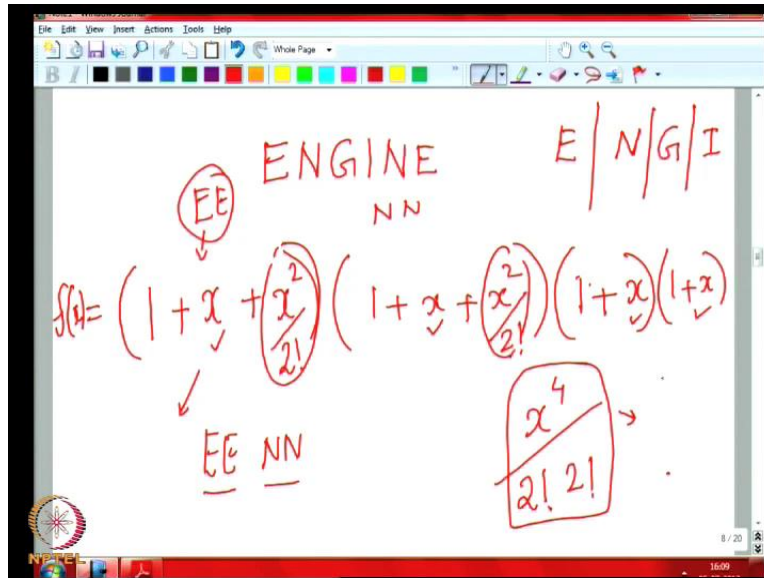 File Edit View Insert Actions Tools Help
Whole Page
B I
ENGINE E | N | G | I
EE NN
f(x) = (1 + x + x²/2!) (1 + x + x²/2!) (1 + x) (1 + x)
EE NN x⁴/2! 2! →
8 / 20
NPTEL
16:09